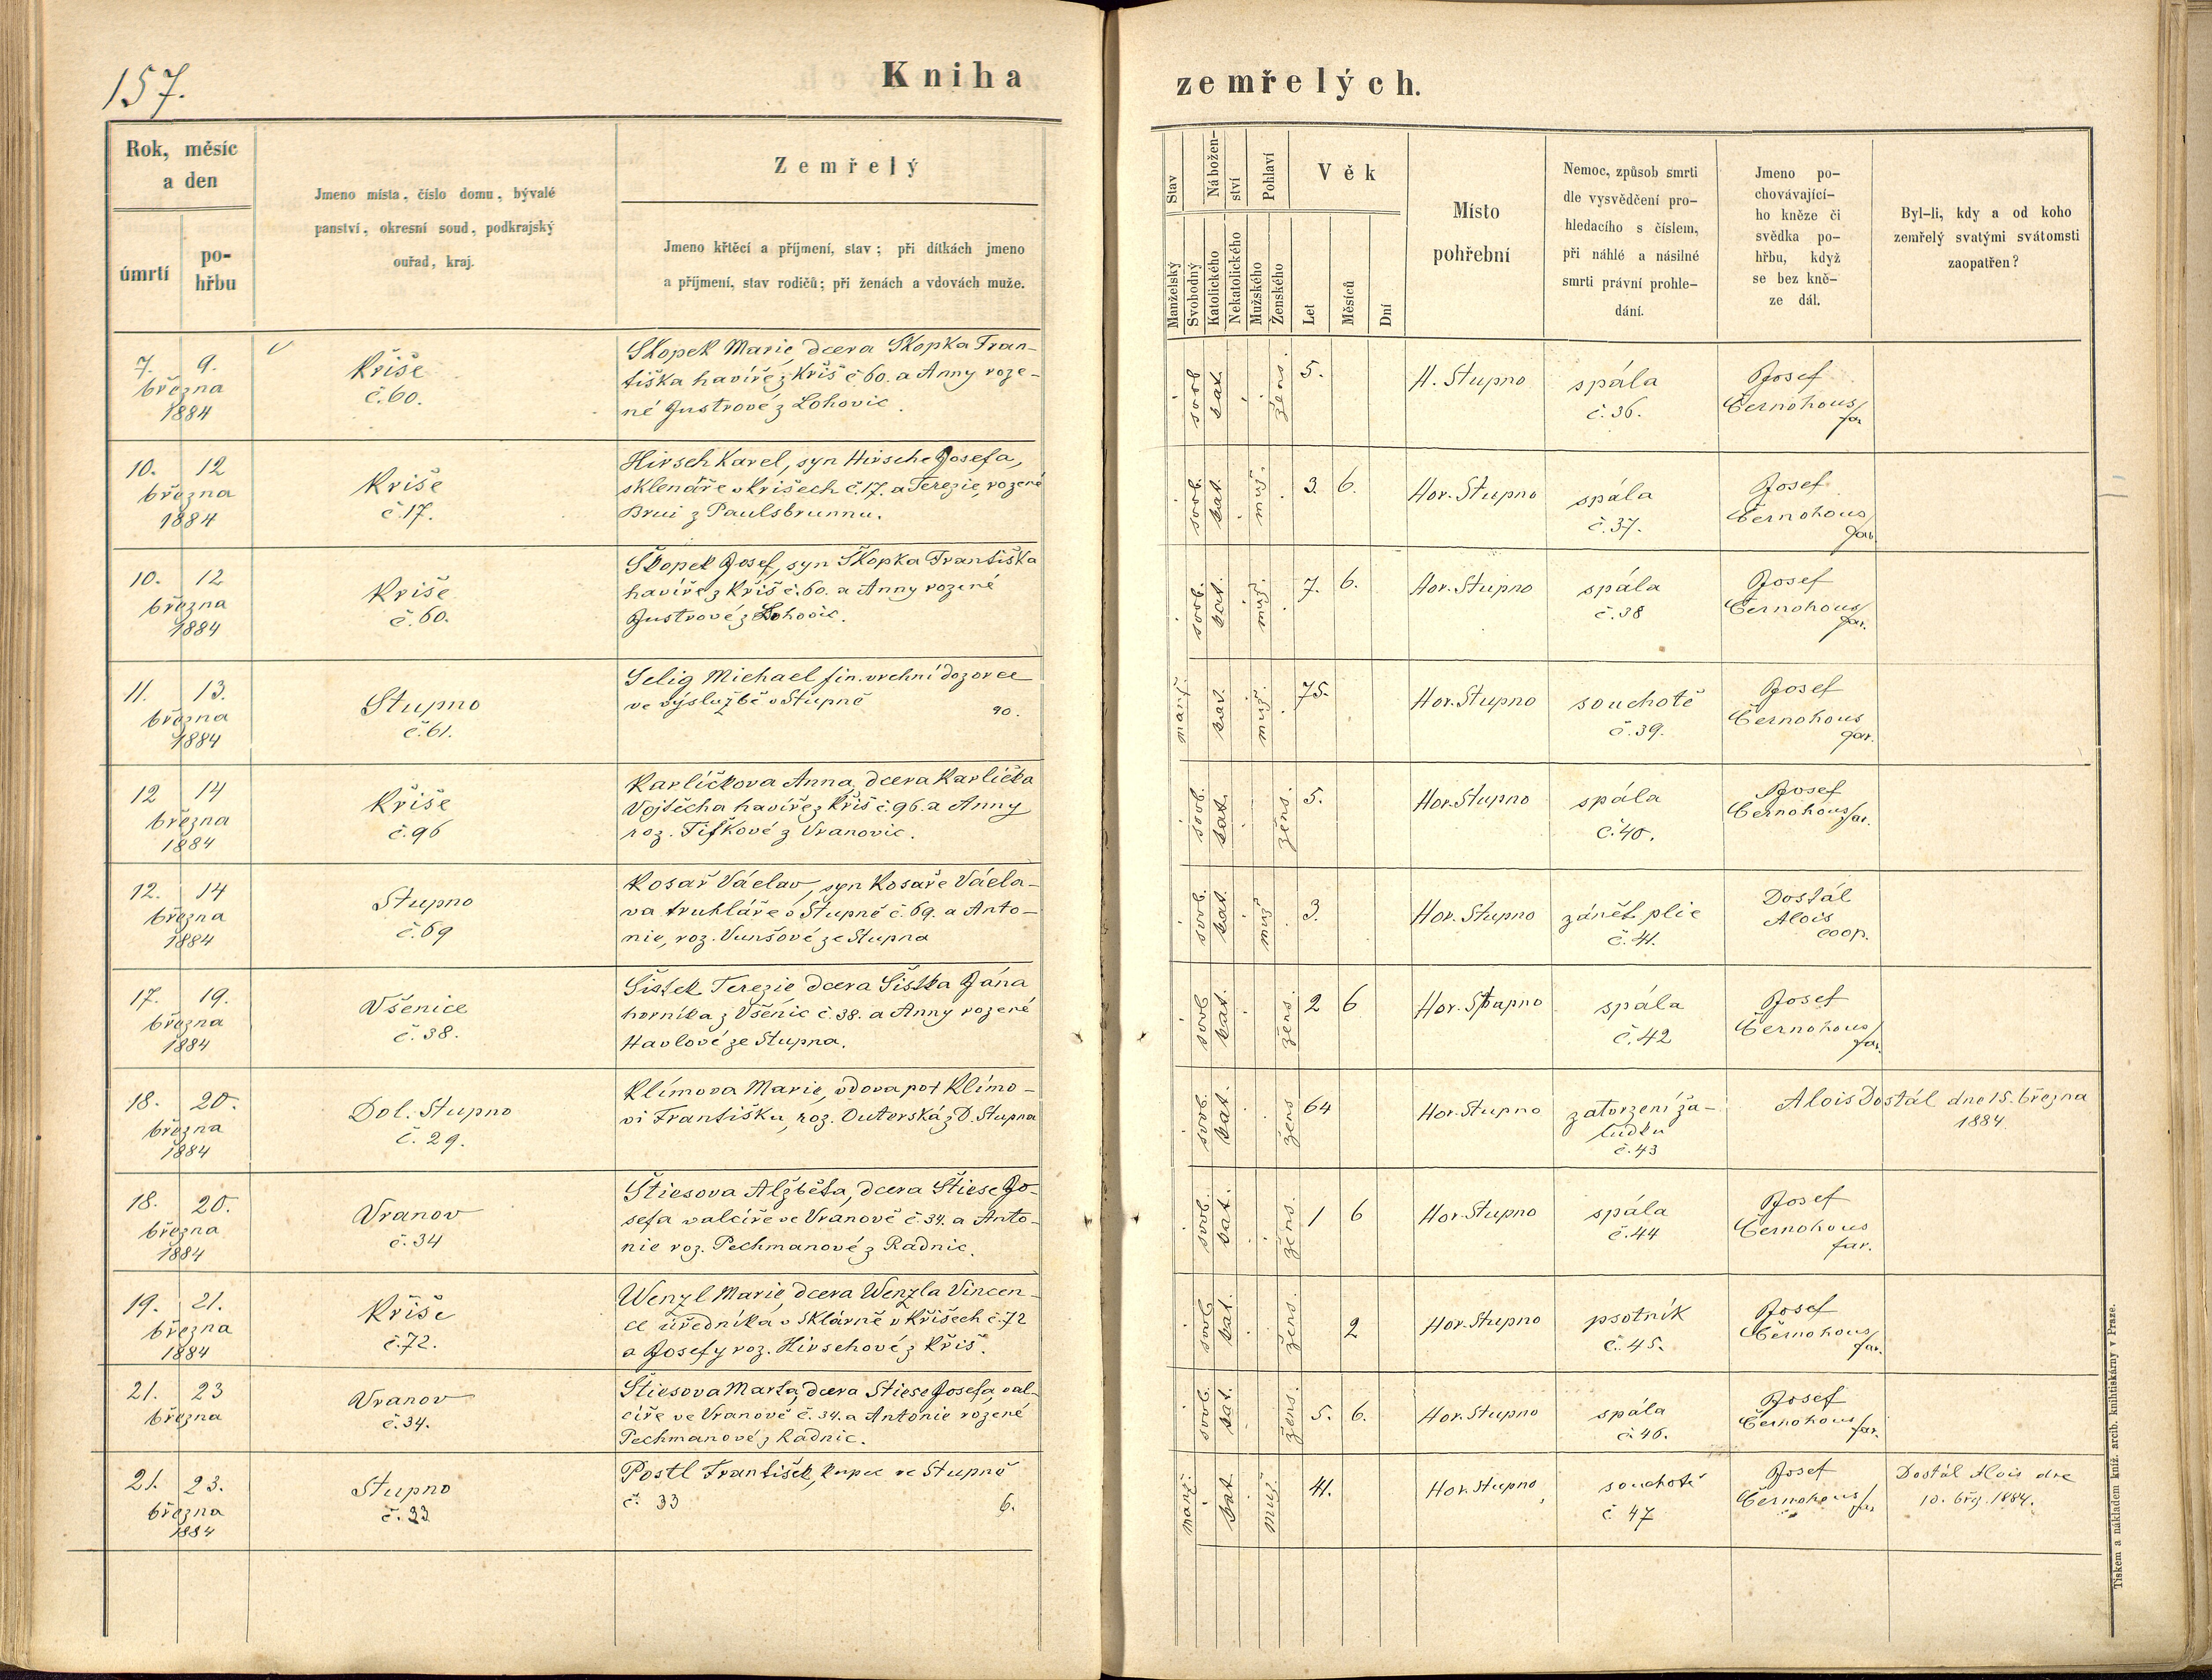 157.
Kniha
zemřelých.
Rok, měsíc
a den
úmrtí
po-
hřbu
Jmeno místa, číslo domu, bývalé
panství, okresní soud, podkrajský
ouřad, kraj.
Zemřelý
Jmeno křtěcí a příjmení, stav; při dítkách jmeno
a příjmení, stav rodičů; při ženách a vdovách muže.
Stav
Manželský
Svobodný
Nábožen-
ství
Katolického
Nekatolického
Pohlaví
Mužského
Ženského
Věk
Let
Měsíců
Dní
Místo
pohřební
Nemoc, způsob smrti
dle vysvědčení pro-
hledacího s číslem,
při náhlé a násilné
smrti právní prohle-
dání.
Jmeno po-
chovávající-
ho kněze či
svědka po-
hřbu, když
se bez kně-
ze dál.
Byl-li, kdy a od koho
zemřelý svatými svátomsti
zaopatřen?
7. 9.
března
1884
Kříše
č.60.
Skopek Marie, dcera Skopka Fran-
tiška havíře z Kříš č 60. a Anny roze-
né Justrové z Lohovic.
svob
kat.
žens.
5.
H. Stupno
spála
č.36.
Josef
Černohous
far
10. 12
března
1884
Kriše
č.17.
Hirsch Karel, syn Hirsche Josefa,
sklenáře v Krišech č.17. a Terezie, rozené
Brui z Paulsbrunnu.
svob.
kat.
muž.
3. 6.
Hor. Stupno
spála
č.37.
Josef
Černohous
far.
10. 12
března
1884
Kriše
č.60.
Skopek Josef, syn Skopka Františka
havíře z Kříš č.60. a Anny rozené
Justrové z Lohovic.
svob.
kat.
muž.
7. 6.
Hor. Stupno
spála
č.38
Josef
Černohous
far.
11. 13.
března
1884
Stupno
č.61.
Selig Michael fin. vrchní dozorce
ve výslužbě v Stupně
90.
manž.
kat.
muž.
75.
Hor. Stupno
souchotě
č.39.
Josef
Černohous
far.
12 14
března
1884
Kříše
č.96
Karlíčkova Anna, dcera Karlíčka
Vojtěcha havíře z Kříš č.96. a Anny
roz. Tiřkové z Vranovic.
svob.
kat.
žens.
5.
Hor. Stupno
spála
č.40.
Josef
Černohous far.
12. 14
března
1884
Stupno
č.69
Kosař Václav, syn Kosaře Václa-
va truhláře v Stupně č.69. a Anto-
nie, roz. Vunšové ze Stupna
svob.
kat.
muž
3.
Hor. Stupno
zánět plic
č.41.
Dostál
Alois
coop.
17. 19.
března
1884
Všenice
č.38.
Šístek Terezie dcera Šístka Jána
horníka z Všenic č.38. a Anny rozené
Havlové ze Stupna.
svob
kat.
žens.
2 6
Hor. Stupno
spála
č.42
Josef
Černohous
far.
18. 20.
března
1884
Dol. Stupno
č.29.
Klímova Marie, vdova po † Klímo-
vi Františku, roz. Outerská z D. Stupna
svob.
kat.
žens
64
Hor. Stupno
zatvrzení ža-
ludku
č.43
Alois Dostál dne 15. března
1884.
18. 20.
března
1884
Vranov
č.34
Štiesova Alžběta, dcera Štiese Jo-
sefa valcíře ve Vranově č.34. a Anto-
nie roz. Pechmanové z Radnic.
svob.
kat.
žens.
1 6
Hor. Stupno
spála
č.44
Josef
Černohous
far.
19. 21.
března
1884
Kříše
č.72.
Wenzl Marie, dcera Wenzla Vincen-
ce úředníka v sklárně v Křišech č.72
a Josefy roz. Hirschové z Kříš.
svob
kat.
žens.
2
Hor. Stupno
psotník
č.45.
Josef
Černohous
far.
21. 23
března
Vranov
č.34.
Štiesova Marta, dcera Stiese Josefa, val-
cíře ve Vranově č.34. a Antonie rozené
Pechmanové z Radnic.
svob.
kat.
žens.
5. 6.
Hor. Stupno
spála
č.46.
Josef
Černohous
far.
21. 23.
března
1884
Stupno
č.33
Postl František, kupec ve Stupně
č. 33
6.
manž.
kat
muž.
41.
Hor. Stupno
souchotě
č 47
Josef
Černohous
far
Dostál Alois dne
10. břez. 1884.
Tiskem a nákladem kníž. arcib. knihtiskárny v Praze.